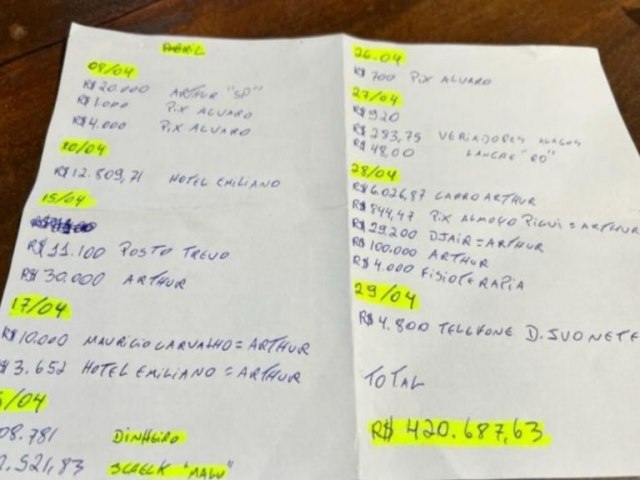 ABRIL
08/04
R$20.000 ARTHUR "SP"
R$1.000 PIX ALVARO
R$4.000 PIX ALVARO
10/04
R$12.809,71 HOTEL EMILIANO
15/04
R$11.100 POSTO TREVO
R$30.000 ARTHUR
17/04
R$10.000 MAURICIO CARVALHO = ARTHUR
$3.652 HOTEL EMILIANO = ARTHUR
5/04
08.781 DINHEIRO
2.521,83 "MALU"
26.04
R$700 PIX ALVARO
27/04
R$920
R$283,75 VERIADORES
R$48,00 LANCHE "RO"
28/04
R$6.026,87 CARRO ARTHUR
R$844,47 PIX ALMOÇO PIQUI = ARTHUR
R$29.200 DJAIR = ARTHUR
R$100.000 ARTHUR
R$4.000 FISIOTERAPIA
29/04
R$4.800 TELEFONE D. IVONETE
TOTAL
R$420.687,63